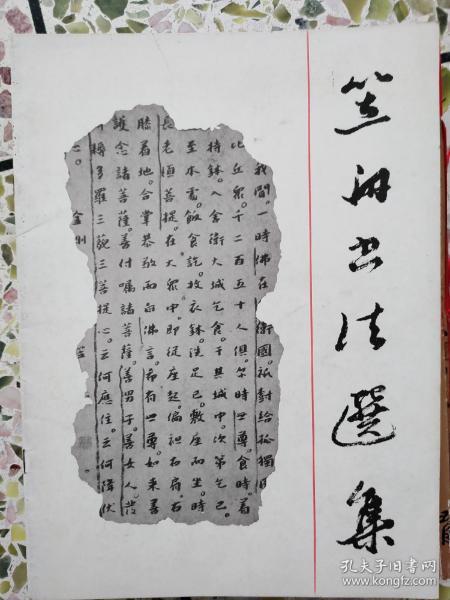 笠舟书法選集
我聞。一時佛在
衛國。祇對給孤獨
比丘眾。千二百五十人俱。尒時世尊。食時。着
持鉢。入舍衛大城乞食。于其城中。次第乞已。
至本處。飯食訖。收衣鉢。洗足已。敷座而坐。時
長老須菩提。在大眾中。即從座起。偏袒右肩。右
膝着地。合掌恭敬。而白佛言。希有世尊。如来善
護念諸菩薩。善付嘱諸菩薩。善男子。善女人。發
耨多羅三藐三菩提心。云何應住。云何降伏
心。
金刚
孔夫子旧书网
www.kongfz.com